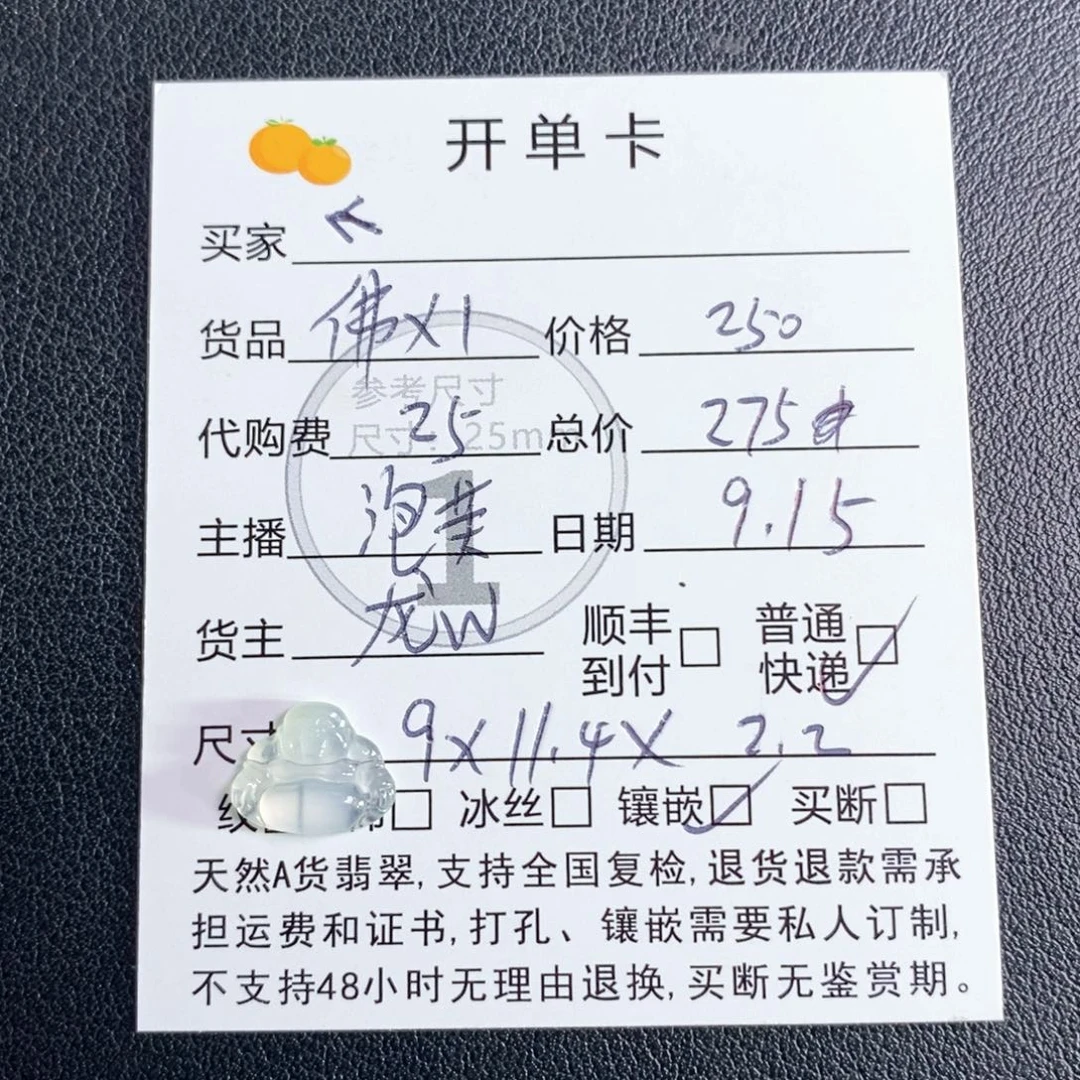 开单卡
买家
货品 佛X1 价格 250
参考尺寸
代购费 25 总价 275
尺寸: 25mm
1
主播 泡芙 日期 9.15
货主 龙W 顺丰到付 普通快递
尺寸 9X11.4X 2.2
冰丝 镶嵌 买断
天然A货翡翠,支持全国复检,退货退款需承
担运费和证书,打孔、镶嵌需要私人订制,
不支持48小时无理由退换,买断无鉴赏期。